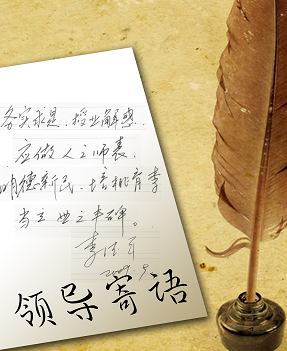 务实求是、授业解惑、
应做人之师表,
明德新民、培桃育李
当立业之丰碑。
2009.9
领导寄语